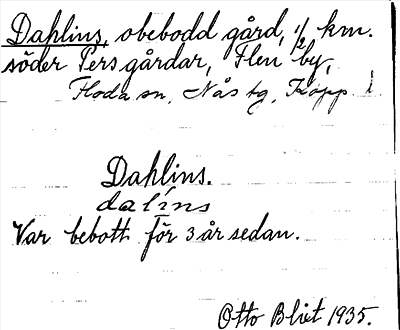 Dahlins, obebodd gård, 1/2 km.
söder Pers gårdar, Flen by,
Floda sn, Nås tg, Kopp. l
Dahlins.
dalíns
Var bebott för 3 år sedan.
Otto Blixt 1935.